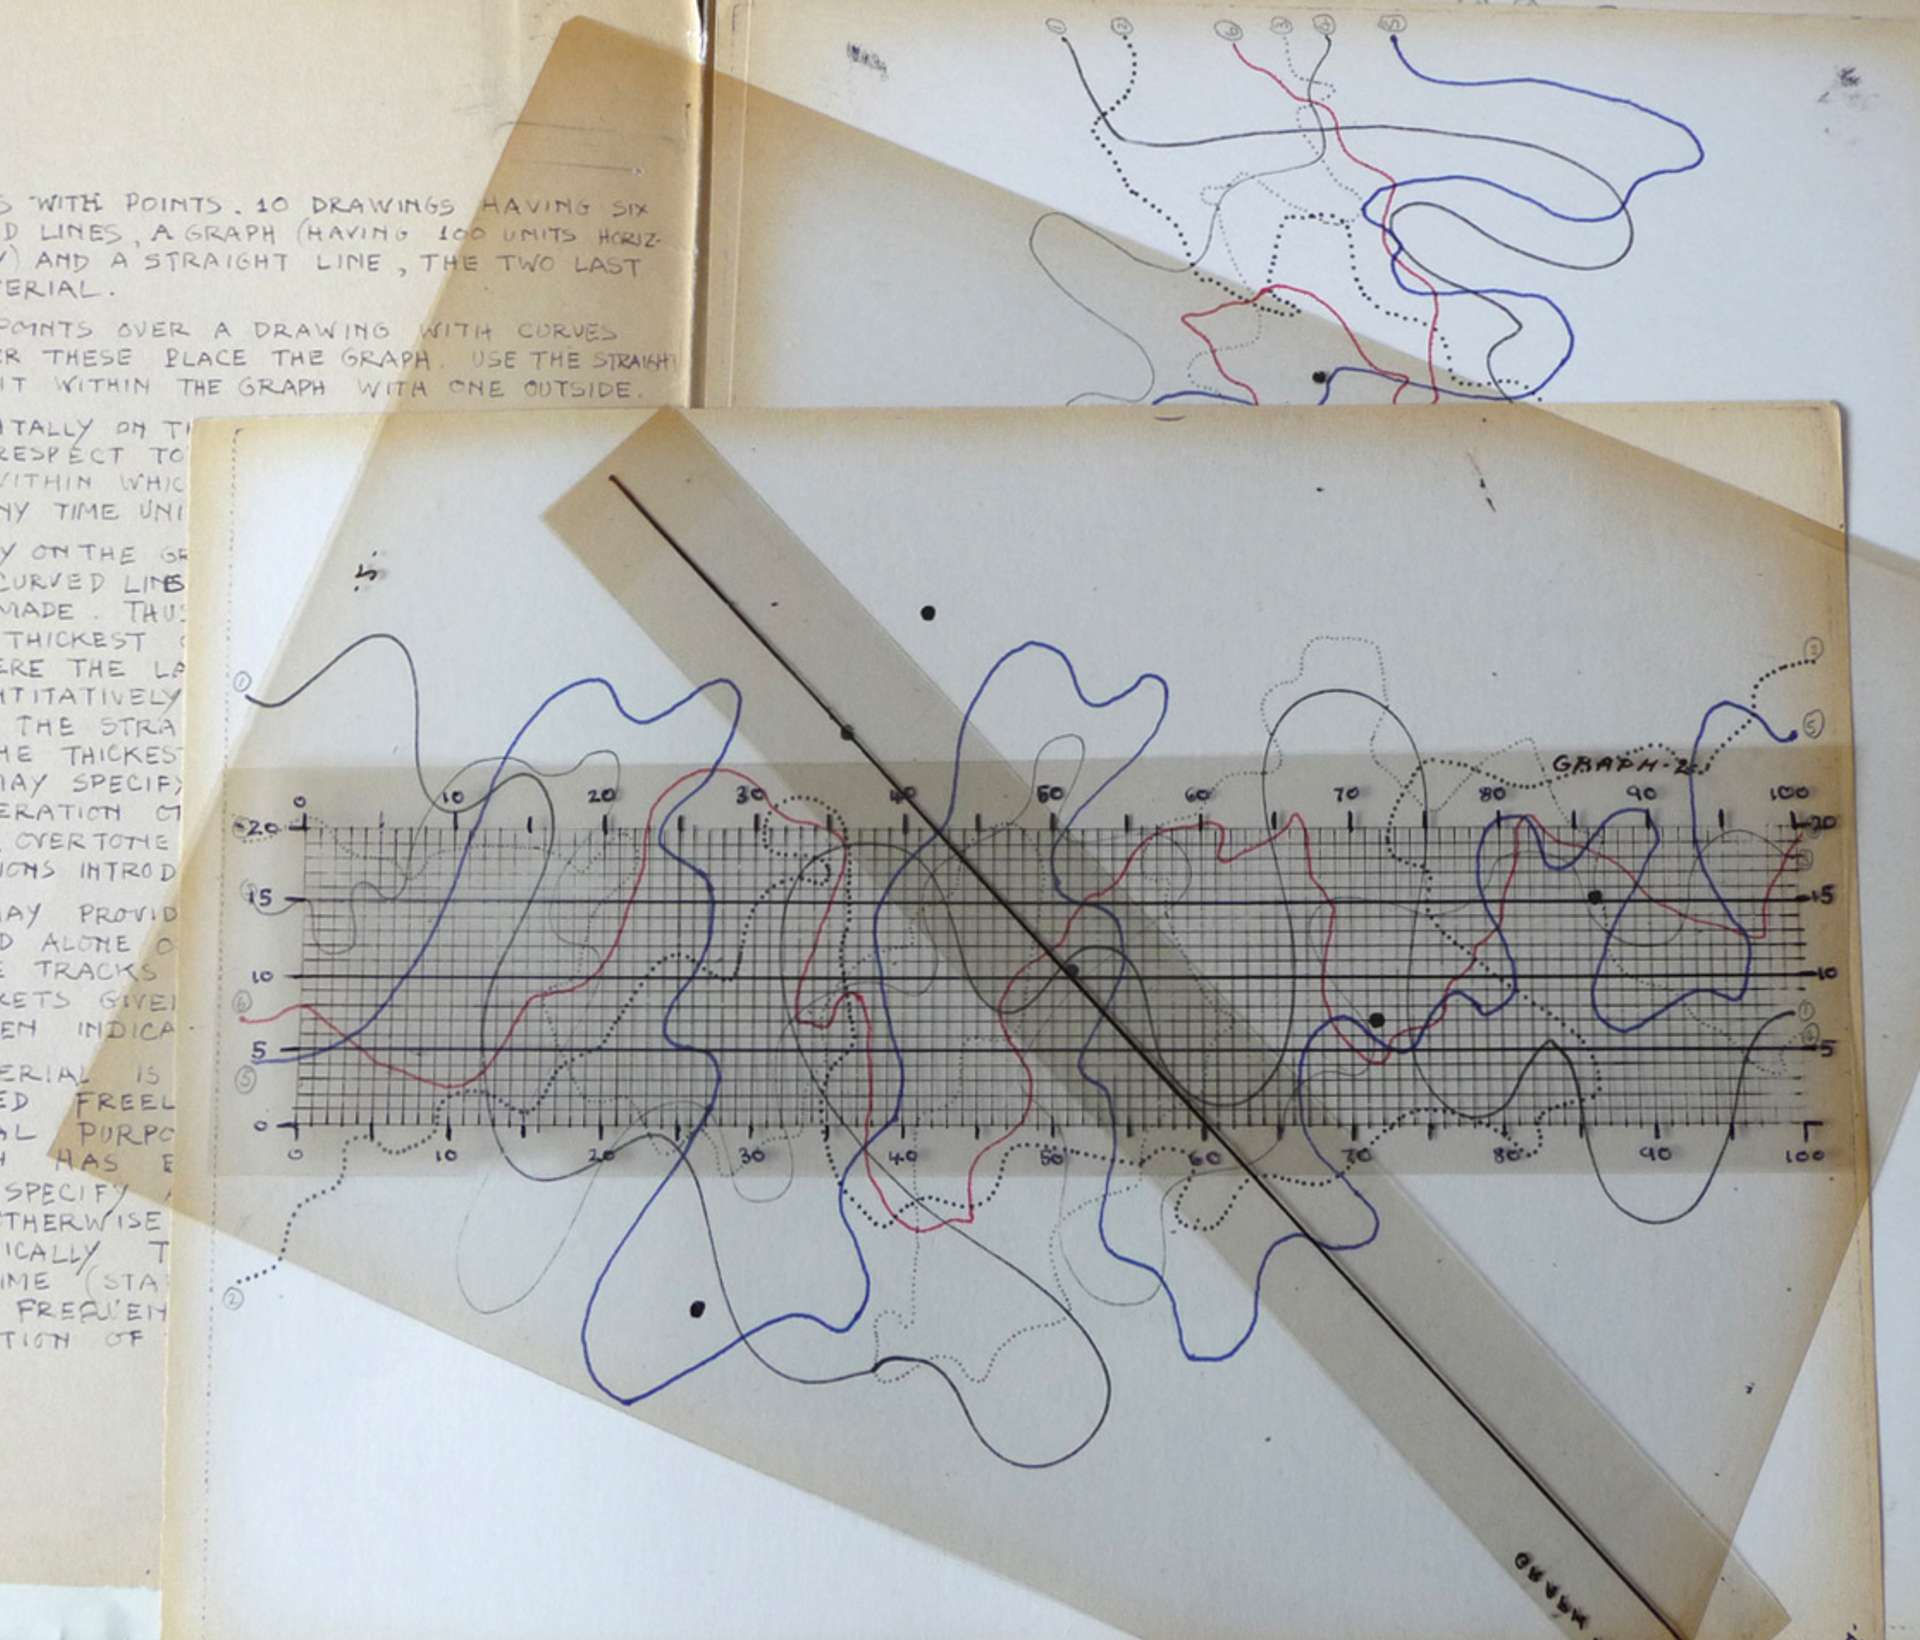 S WITH POINTS. 10 DRAWINGS HAVING SIX
D LINES, A GRAPH (HAVING 100 UNITS HORIZ-
Y) AND A STRAIGHT LINE, THE TWO LAST
ERIAL.
POINTS OVER A DRAWING WITH CURVES
ER THESE PLACE THE GRAPH. USE THE STRAIGHT
IT WITHIN THE GRAPH WITH ONE OUTSIDE.
NTALLY ON TH
RESPECT TO
WITHIN WHIC
NY TIME UNI
Y ON THE GR
CURVED LINES
MADE. THUS
THICKEST
ERE THE LA
NTITATIVELY
THE STRA
HE THICKEST
MAY SPECIFY
ERATION OT
OVERTONE
IONS INTROD
AY PROVID
D ALONE O
E TRACKS
KETS GIVEN
EN INDICA
ERIAL IS
ED FREEL
AL PURPO
H HAS B
SPECIFY
OTHERWISE
ICALLY T
IME (STA
FREQUEN
TION OF
1 2 6 3 4 5
1
2
5
GRAPH-2
0 10 20 30 40 50 60 70 80 90 100
20 20
15 15
10 10
5 5
0
0 10 20 30 40 50 60 70 80 90 100
6
5
2
1
GRAPH